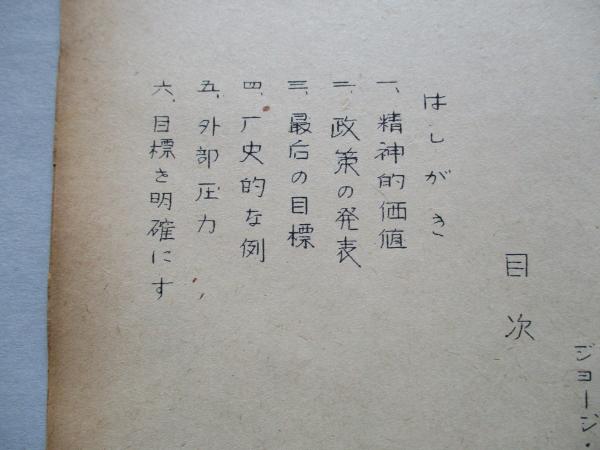 ジョージ・
目次
はしがき
一、精神的価値
二、政策の発表
三、最后の目標
四、厂史的な例
五、外部圧力
六、目標を明確にす